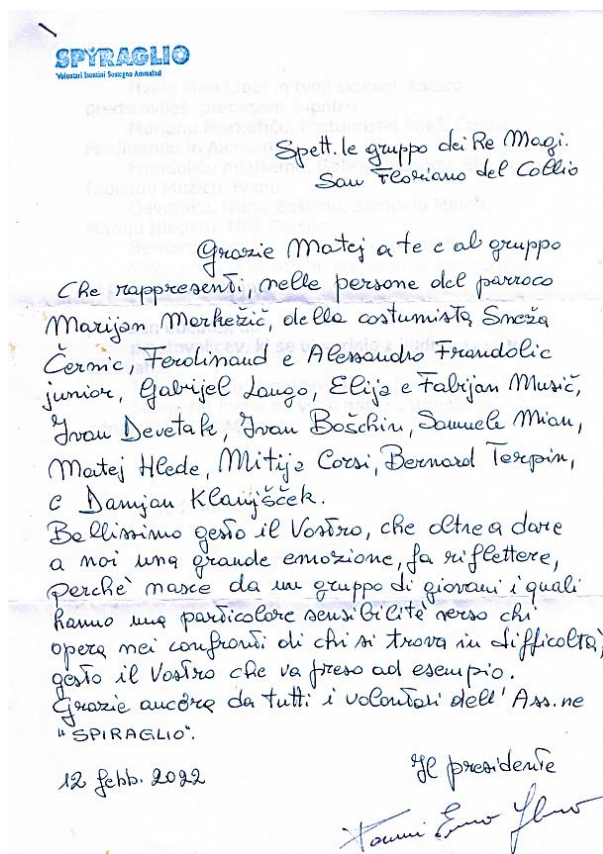 SPYRAGLIO
Volontari Isontini Sostegno Ammalati
Spett.le gruppo dei Re Magi.
San Floriano del Collio
Grazie Matej a te e al gruppo
Che rappresenti, nelle persone del parroco
Marijan Markežič, della costumista Sneža
Černic, Ferdinand e Alessandro Frandolic
junior, Gabrijel Lango, Elija e Fabijan Musič,
Ivan Devetak, Ivan Boschin, Samuele Mian,
Matej Hlede, Mitija Corsi, Bernard Terpin,
e Damjan Klanjšček.
Bellissimo gesto il Vostro, che oltre a dare
a noi una grande emozione, fa riflettere,
perchè nasce da un gruppo di giovani i quali
hanno una particolore sensibilità verso chi
opera nei confronti di chi si trova in difficoltà,
gesto il Vostro che va preso ad esempio.
Grazie ancora da tutti i volontari dell'Ass.ne
"SPIRAGLIO".
12 febb. 2022
Il presidente